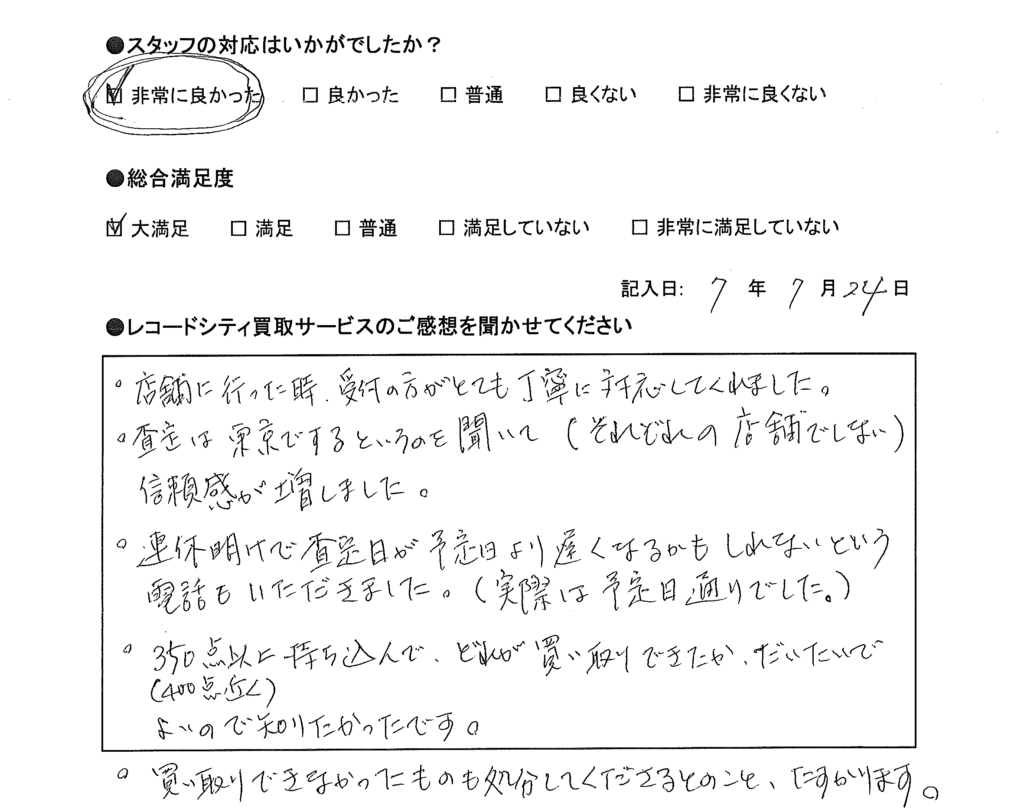 ●スタッフの対応はいかがでしたか？
☑ 非常に良かった □ 良かった □ 普通 □ 良くない □ 非常に良くない
●総合満足度
☑ 大満足 □ 満足 □ 普通 □ 満足していない □ 非常に満足していない
記入日: 7 年 7 月 24 日
●レコードシティ買取サービスのご感想を聞かせてください
。店舗に行った時、受付の方がとても丁寧に対応してくれました。
。査定は東京でするというのを聞いて（それぞれの店舗でしない）
信頼感が増しました。
。連休明けで査定日が予定日より遅くなるかもしれないという
電話もいただきました。（実際は予定日通りでした。）
。350点以上持ち込んで、どれが買い取りできたか、だいたいで
（400点近く）
よいので知りたかったです。
。買い取りできなかったものも処分してくださるとのこと、たすかります。